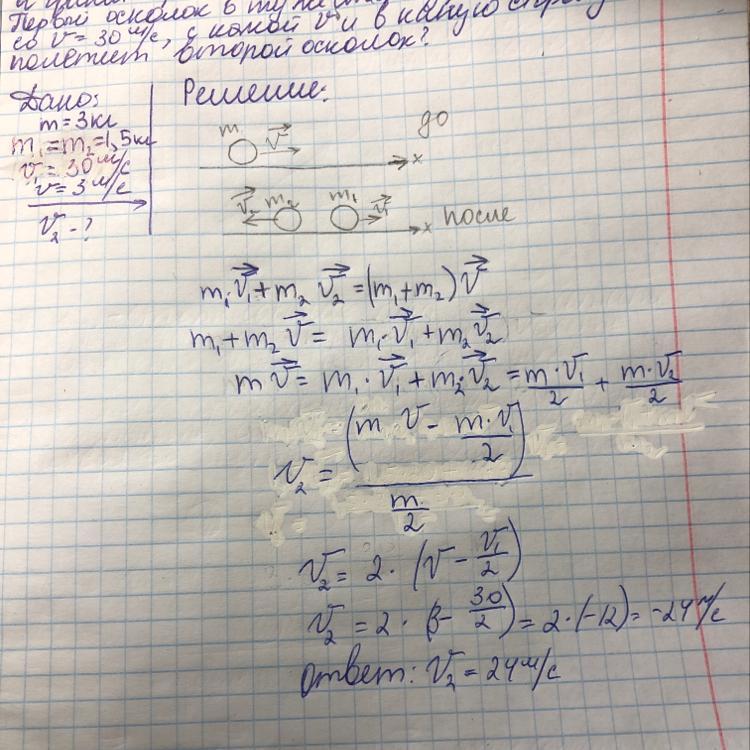 Первый осколок в ту же
со v = 30 м/с, с какой v и в какую сторону
полетит второй осколок?
Дано:
m = 3 кг
m₁ = m₂ = 1,5 кг
v₁ = 30 м/с
v = 3 м/с
v₂ - ?
Решение:
m v⃗ до
x
v⃗₂ m₂ m₁ v⃗₁
x после
m₁·v⃗₁ + m₂ v⃗₂ = (m₁ + m₂) v⃗
m₁ + m₂ v⃗ = m₁·v⃗₁ + m₂ v⃗₂
m v⃗ = m₁·v⃗₁ + m₂·v⃗₂ = m·v₁/2 + m·v₂/2
v₂ = (m v - m·v₁/2) / (m/2)
v₂ = 2·(v - v₁/2)
v₂ = 2·(3 - 30/2) = 2·(-12) = -24 м/с
Ответ: v₂ = 24 м/с